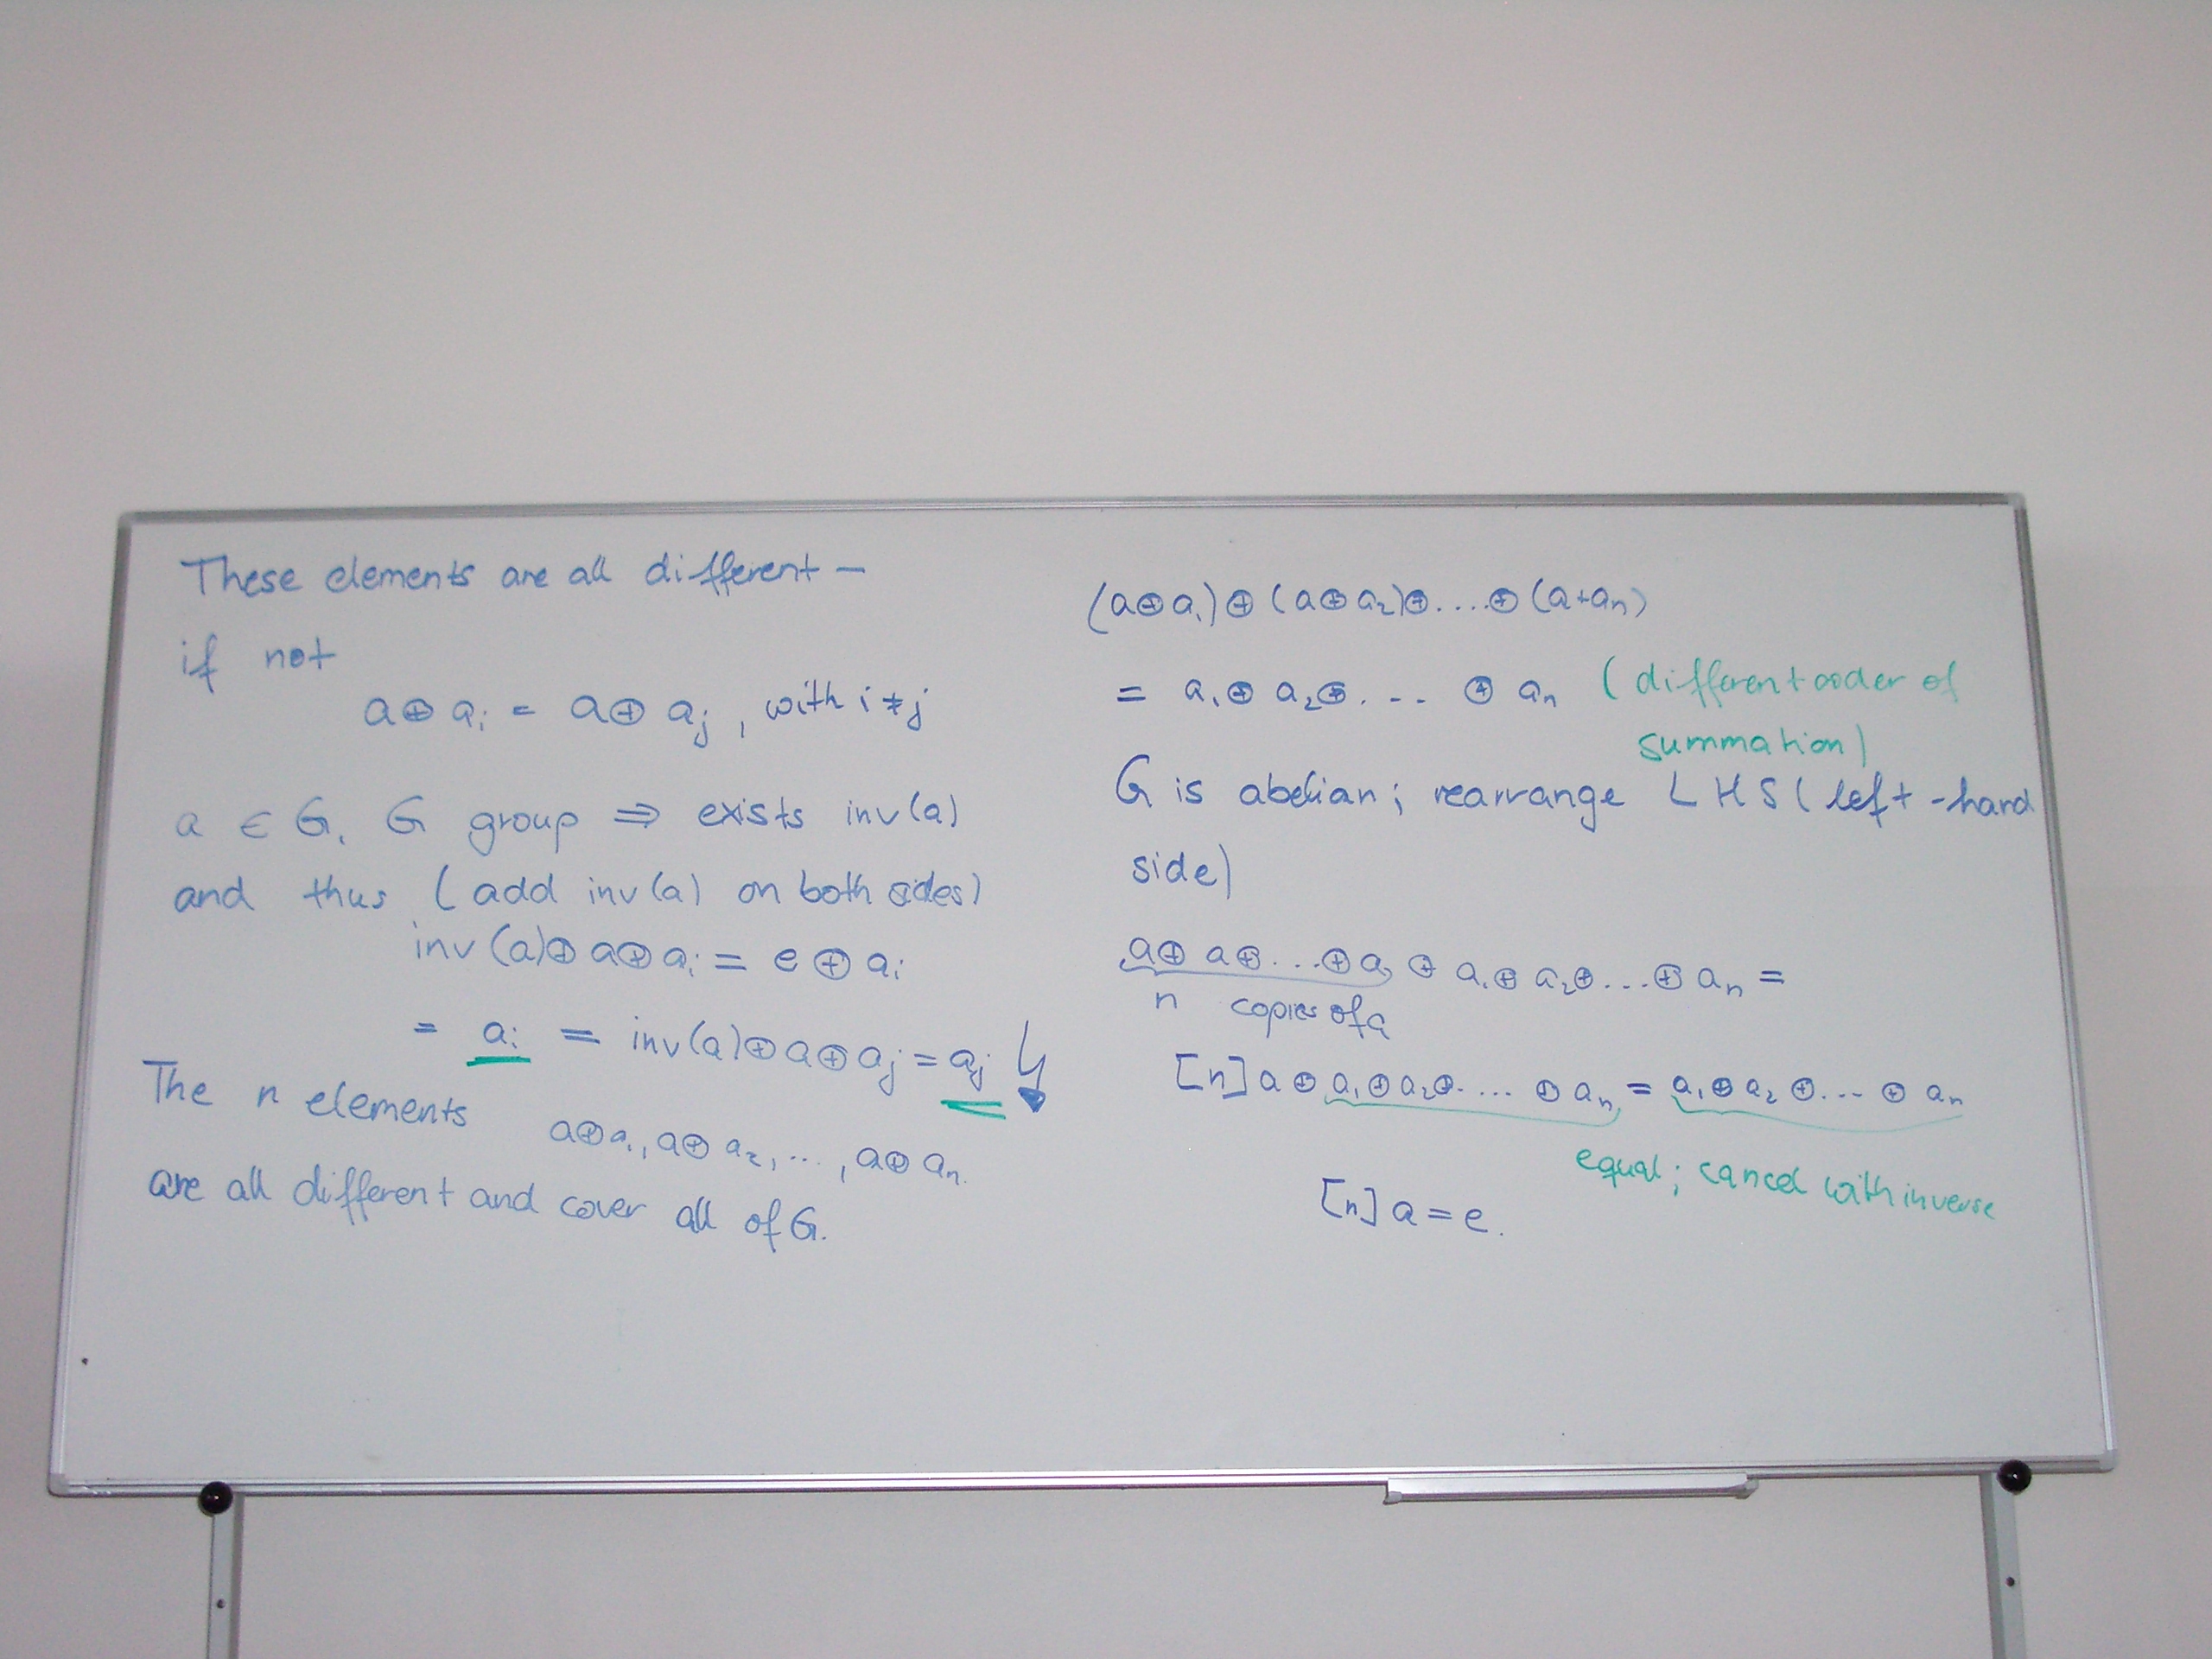 These elements are all different –
if not
a ⊕ aᵢ = a ⊕ aⱼ, with i ≠ j
a ∈ G, G group ⇒ exists inv(a)
and thus (add inv(a) on both sides)
inv(a) ⊕ a ⊕ aᵢ = e ⊕ aᵢ
= aᵢ = inv(a) ⊕ a ⊕ aⱼ = aⱼ ↯
The n elements
a⊕a₁, a⊕a₂, ..., a⊕aₙ.
are all different and cover all of G.
(a⊕a₁)⊕(a⊕a₂)⊕....⊕(a+aₙ)
= a₁⊕a₂⊕... ⊕ aₙ (different order of
summation)
G is abelian; rearrange LHS (left-hand
side)
a⊕a⊕...⊕a ⊕ a₁⊕a₂⊕...⊕aₙ =
n copies of a
[n]a⊕a₁⊕a₂⊕....⊕aₙ = a₁⊕a₂⊕...⊕aₙ
equal; cancel with inverse
[n]a = e.